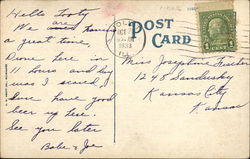 Hello Tooty
We are having
a great time,
Drove here in
11 hours and boy
was I scared,
Sure have good
beer up here.
See you later
Babe & Joe
POST
CARD
1933
ILL
1 CENT 1
Miss Josephine
1248 Sandusky
Kansas City
Kansas